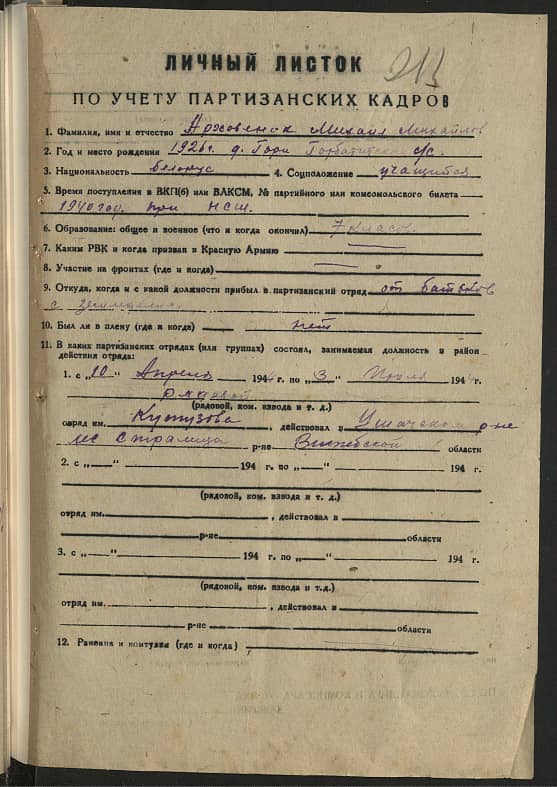 213
ЛИЧНЫЙ ЛИСТОК
ПО УЧЕТУ ПАРТИЗАНСКИХ КАДРОВ
1. Фамилия, имя и отчество Михаил Михайлов
2. Год и место рождения 1926 г. д. Гори с/с.
3. Национальность белорус 4. Соцположение учащийся
5. Время поступления в ВКП(б) или ВЛКСМ, № партийного или комсомольского билета
1940 год. при НСШ.
6. Образование: общее и военное (что и когда окончил) 7 класов
7. Каким РВК и когда призван в Красную Армию —
8. Участие на фронтах (где и когда) —
9. Откуда, когда и с какой должности прибыл в партизанский отряд от
с
10. Был ли в плену (где и когда) нет
11. В каких партизанских отрядах (или группах) состоял, занимаемая должность и район
действия отряда:
1. с "10" Апреля 1944 г. по "3" Июля 1944 г.
рядовой
(рядовой, ком. взвода и т. д.)
отряд им. Кутузова, действовал в Ушачском р-не
лес р-не Витебской области
2. с „—“ 194 г. по „—“ 194 г.
(рядовой, ком. взвода и т. д.)
отряд им. , действовал в
р-не области
3. с „—“ 194 г. по „—“ 194 г.
(рядовой, ком. взвода и т.д.)
отряд им. , действовал в
р-не области
12. Ранения и контузии (где и когда)